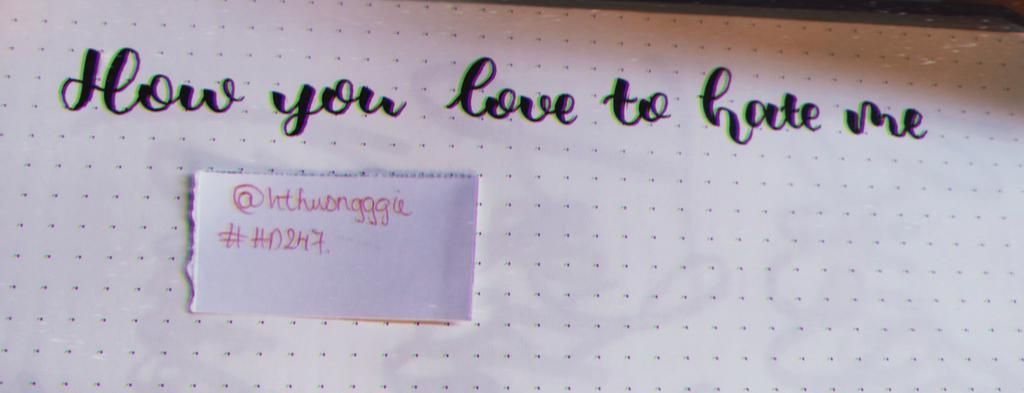 How you love to hate me
@hthuongggie
#HD247